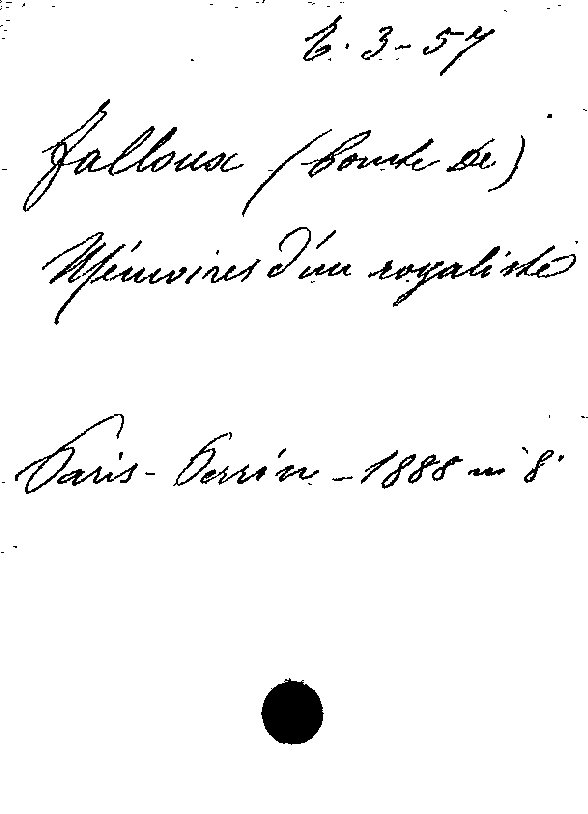 6.3-57
Falloux (Comte de)
Mémoires d'un royaliste
Paris - Perrin - 1888 in 8°